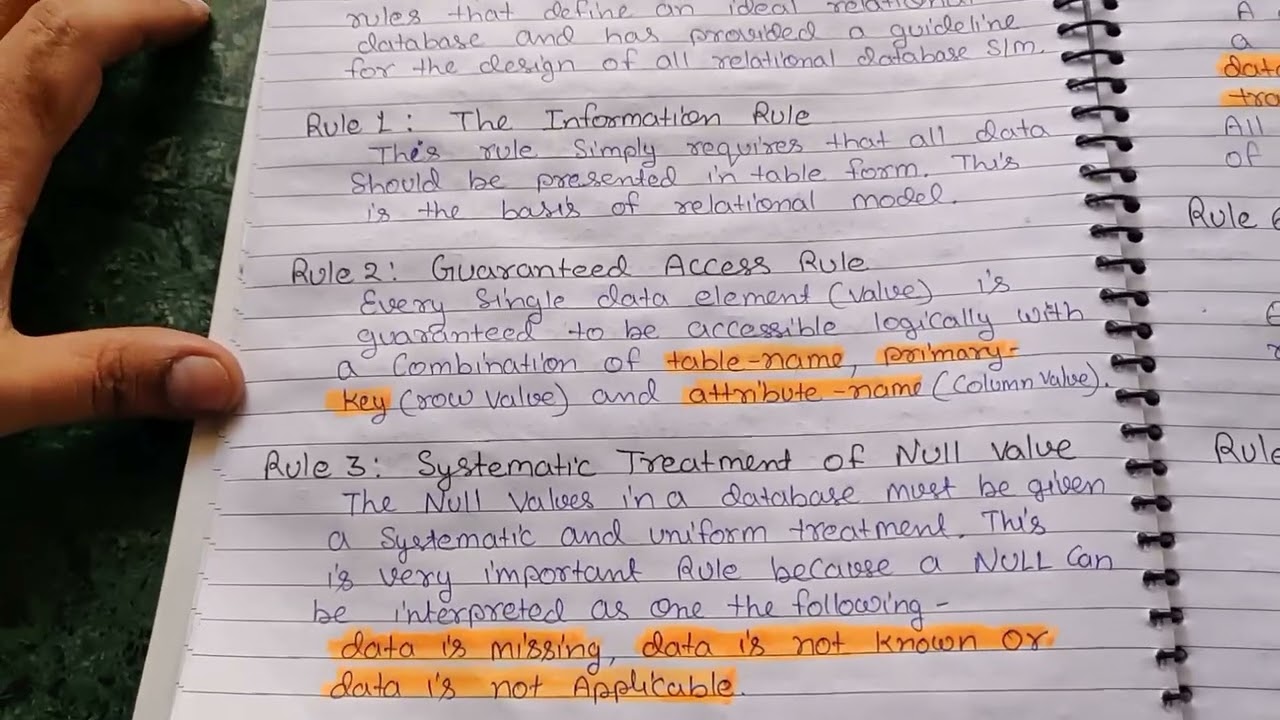 rules that define an ideal relational
database and has provided a guideline
for the design of all relational database S/m.
Rule 1: The Information Rule
This rule Simply requires that all data
Should be presented in table form. This
is the basis of relational model.
Rule 2: Guaranteed Access Rule
Every Single data element (value) is
guaranteed to be accessible logically with
a Combination of table-name, primary-
key (row value) and attribute-name (Column value).
Rule 3: Systematic Treatment of Null value
The Null Values in a database must be given
a Systematic and uniform treatment. This
is very important Rule because a NULL Can
be interpreted as one the following -
data is missing, data is not known or
data is not Applicable.
A
a
data
All
of
Rule
Rule